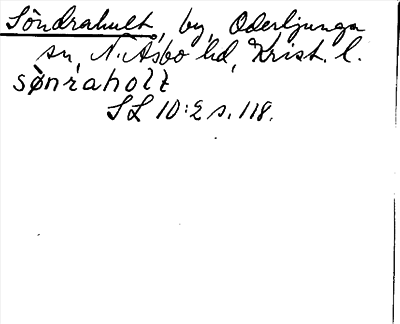 Söndrahult, by, Oderljunga
sn, N. Åsbo hd, Krist. l.
sønraholt
SL 10:2 s. 118.